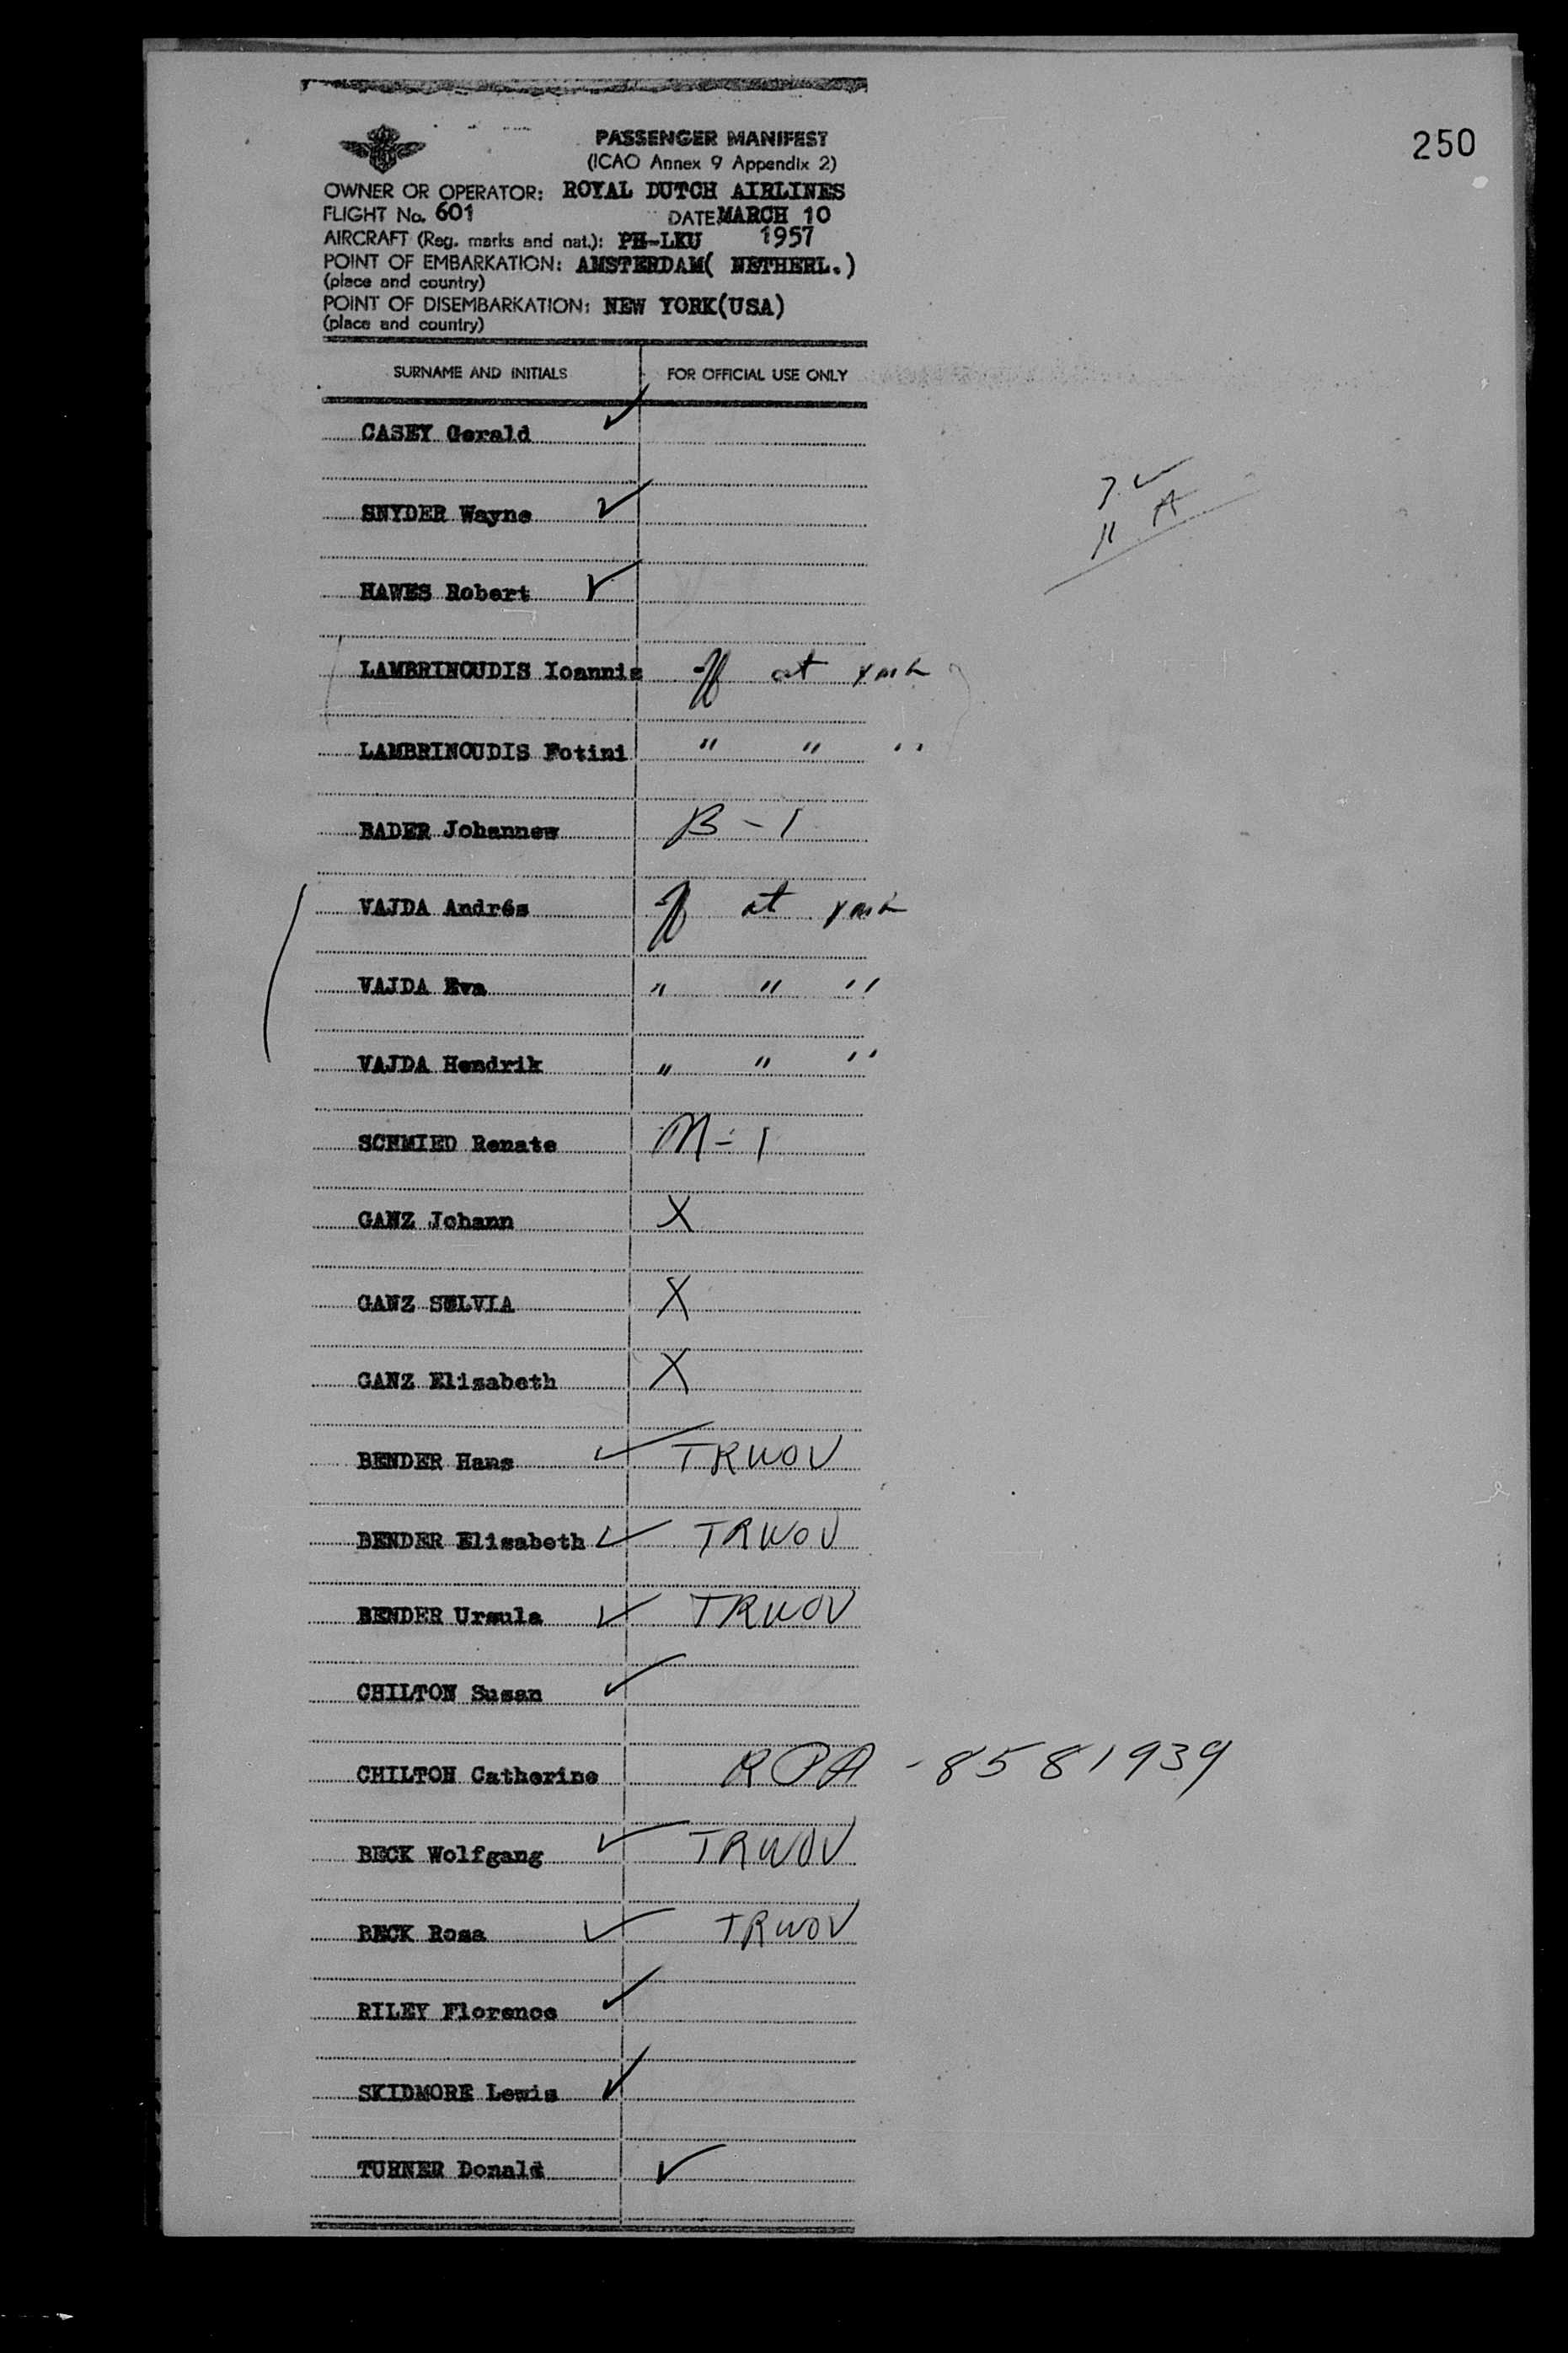 250
PASSENGER MANIFEST
(ICAO Annex 9 Appendix 2)
OWNER OR OPERATOR: ROYAL DUTCH AIRLINES
FLIGHT No. 601 DATE MARCH 10
AIRCRAFT (Reg. marks and nat.): PH-LKU 1957
POINT OF EMBARKATION: AMSTERDAM( NETHERL.)
(place and country)
POINT OF DISEMBARKATION: NEW YORK(USA)
(place and country)
SURNAME AND INITIALS FOR OFFICIAL USE ONLY
CASEY Gerald ✓
SNYDER Wayne ✓
HAWES Robert ✓
LAMBRINOUDIS Ioannis at
LAMBRINOUDIS Fotini " " "
BADER Johannes B-1
VAJDA Andrés at
VAJDA Eva " " "
VAJDA Hendrik " " "
SCHMIED Renate M-1
GANZ Johann X
GANZ SELVIA X
GANZ Elisabeth X
BENDER Hans ✓ TRWOV
BENDER Elisabeth ✓ TRWOV
BENDER Ursula ✓ TRWOV
CHILTON Susan ✓
CHILTON Catherine RPA-8581939
BECK Wolfgang ✓ TRWOV
BECK Rosa ✓ TRWOV
RILEY Florence ✓
SKIDMORE Lewis ✓
TURNER Donald ✓